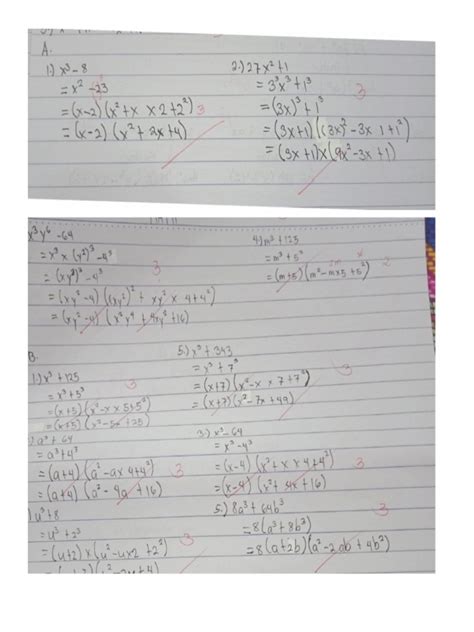 A.
1) x³ - 8
= x² - 23
= (x-2) (x² + x × 2 + 2²) 3
= (x-2) (x² + 2x + 4)
2.) 27x² + 1
= 3³x³ + 1³
= (3x)³ + 1³ 3
= (3x+1) ((3x)² - 3x 1 + 1²)
= (3x+1) x (9x² - 3x + 1)
x³y⁶ - 64
= x³ x (y²)³ - 4³
= (xy²)³ - 4³ 3
= (xy² - 4) ((xy²)² + xy² x 4 + 4²)
= (xy² - 4) (x²y⁴ + 4xy² + 16)
4) m³ + 125
= m³ + 5³
= (m+5) (m² - m×5 + 5²) 2
B.
1.) x³ + 125
= x³ + 5³ 3
= (x+5) (x² - x × 5 + 5²)
= (x+5) (x² - 5x + 25)
5.) x³ + 343
= x³ + 7³
= (x+7) (x² - x × 7 + 7²) 3
= (x+7) (x² - 7x + 49)
a³ + 64
= a³ + 4³
= (a+4) (a² - a× 4 + 4²) 3
= (a+4) (a² - 4a + 16)
3.) x³ - 64
= x³ - 4³
= (x-4) (x² + x × 4 + 4²) 3
= (x-4) (x² + 4x + 16)
) u³ + 8
= u³ + 2³ 3
= (u+2) x (u² - ux2 + 2²)
5.) 8a³ + 64b³
= 8(a³ + 8b³) 3
= 8(a+2b) (a² - 2ab + 4b²)